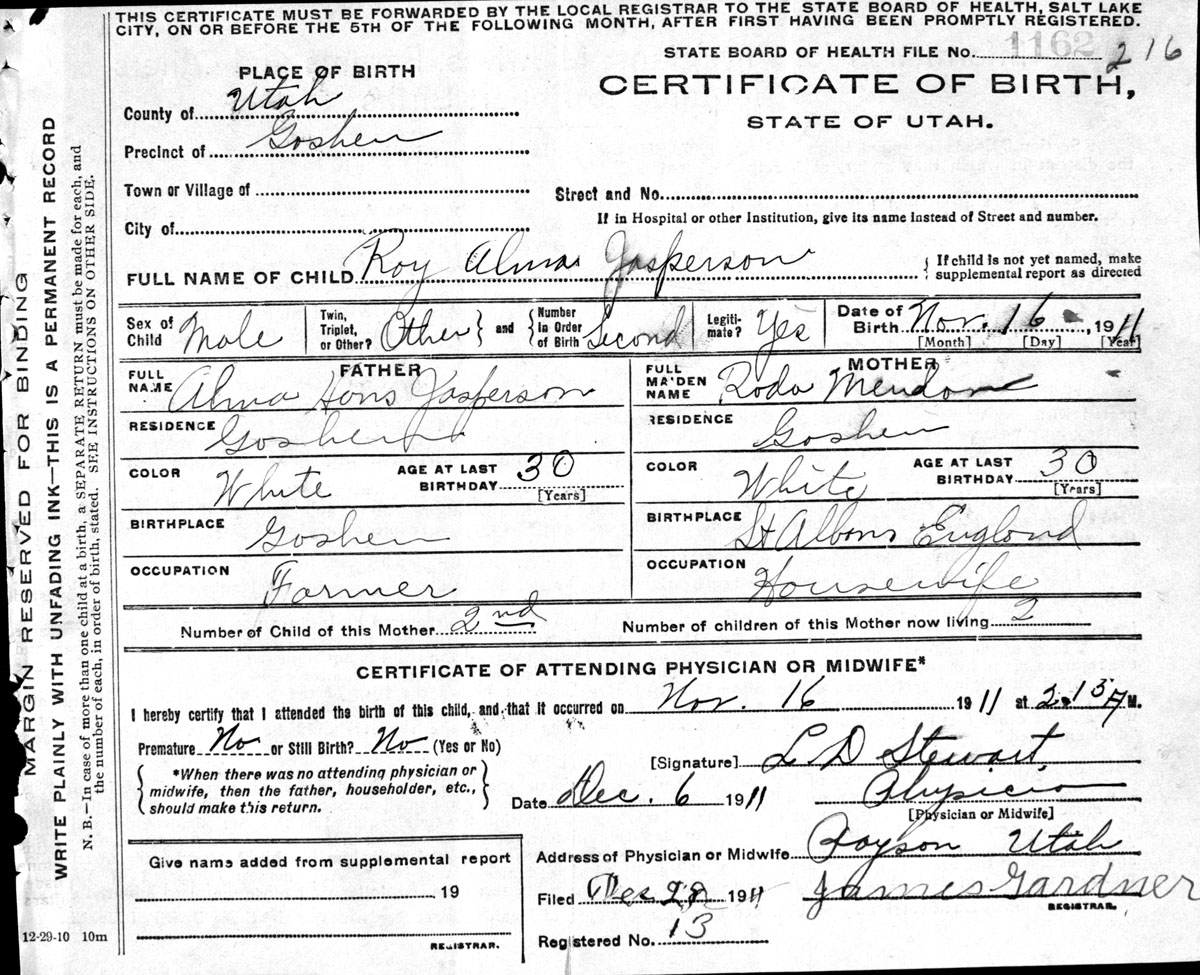 THIS CERTIFICATE MUST BE FORWARDED BY THE LOCAL REGISTRAR TO THE STATE BOARD OF HEALTH, SALT LAKE
CITY, ON OR BEFORE THE 5TH OF THE FOLLOWING MONTH, AFTER FIRST HAVING BEEN PROMPTLY REGISTERED.
STATE BOARD OF HEALTH FILE No. 1162 216
CERTIFICATE OF BIRTH,
STATE OF UTAH.
PLACE OF BIRTH
County of Utah
Precinct of Goshen
Town or Village of
Street and No.
If in Hospital or other Institution, give its name instead of Street and number.
City of
FULL NAME OF CHILD Roy Alma Jasperson
If child is not yet named, make
supplemental report as directed
Sex of Child Male
Twin, Triplet, or Other? Other and Number in Order of Birth Second
Legiti-mate? Yes
Date of Birth Nov. 16 1911
[Month] [Day] [Year]
FATHER
FULL NAME Alma Hans Jasperson
RESIDENCE Goshen
COLOR White AGE AT LAST BIRTHDAY 30
[Years]
BIRTHPLACE Goshen
OCCUPATION Farmer
MOTHER
FULL MAIDEN NAME Roda
RESIDENCE Goshen
COLOR White AGE AT LAST BIRTHDAY 30
[Years]
BIRTHPLACE St Albans England
OCCUPATION Housewife
Number of Child of this Mother 2nd Number of children of this Mother now living 2
CERTIFICATE OF ATTENDING PHYSICIAN OR MIDWIFE*
I hereby certify that I attended the birth of this child, and that it occurred on Nov. 16 1911 at A M.
Premature No or Still Birth? No (Yes or No)
*When there was no attending physician or
midwife, then the father, householder, etc.,
should make this return.
[Signature] L. D Stewart
Date Dec. 6 1911 Physician
[Physician or Midwife]
Give name added from supplemental report
19
REGISTRAR.
Address of Physician or Midwife Payson Utah
Filed Dec 1911 James Gardner
REGISTRAR.
Registered No. 13
MARGIN RESERVED FOR BINDING
WRITE PLAINLY WITH UNFADING INK—THIS IS A PERMANENT RECORD
N. B.—In case of more than one child at a birth, a SEPARATE RETURN must be made for each, and
the number of each, in order of birth, stated. SEE INSTRUCTIONS ON OTHER SIDE.
12-29-10 10m